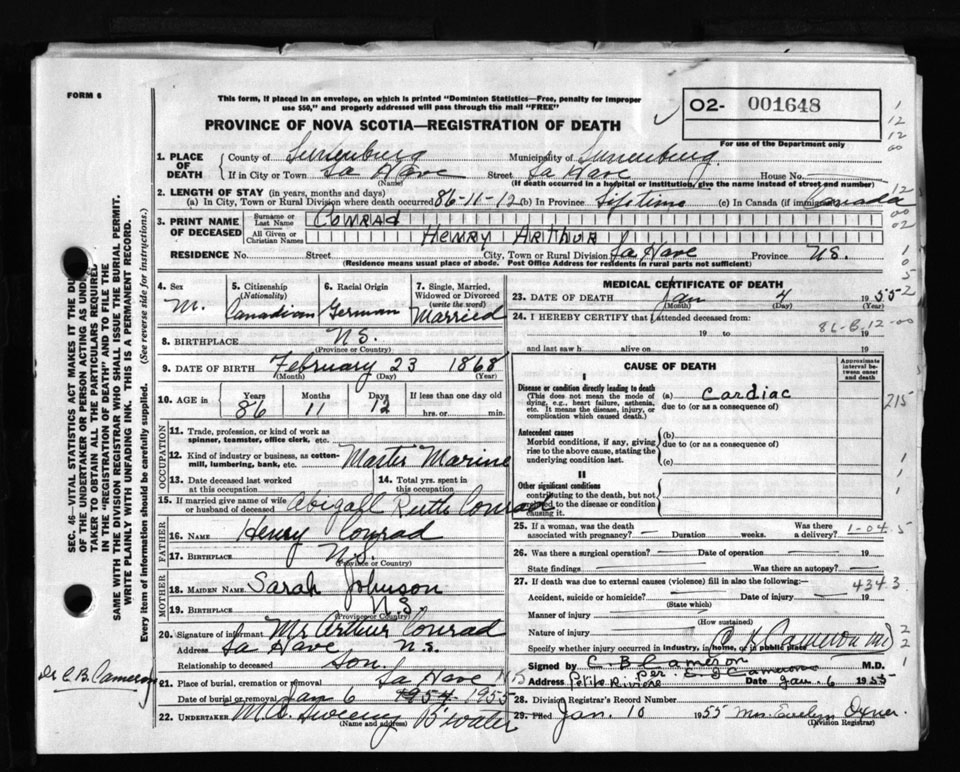 FORM 6
This form, if placed in an envelope, on which is printed "Dominion Statistics—Free, penalty for improper
use $50," and properly addressed will pass through the mail "FREE"
PROVINCE OF NOVA SCOTIA—REGISTRATION OF DEATH
02- 001648
For use of the Department only
1. PLACE OF DEATH County of Lunenburg Municipality of Lunenburg
If in City or Town La Have (Name) Street La Have House No.
(If death occurred in a hospital or institution, give the name instead of street and number)
2. LENGTH OF STAY (in years, months and days)
(a) In City, Town or Rural Division where death occurred 86-11-12 (b) In Province Lifetime (c) In Canada (if immigrant) Canada
3. PRINT NAME OF DECEASED Surname or Last Name CONRAD
All Given or Christian Names HENRY ARTHUR
RESIDENCE No. Street City, Town or Rural Division La Have Province N.S.
(Residence means usual place of abode. Post Office Address for residents in rural parts not sufficient)
4. Sex M.
5. Citizenship (Nationality) Canadian
6. Racial Origin German
7. Single, Married, Widowed or Divorced (write the word) Married
8. BIRTHPLACE N.S.
(Province or Country)
9. DATE OF BIRTH February 23 1868
(Month) (Day) (Year)
10. AGE in Years 86 Months 11 Days 12 If less than one day old hrs. or min.
OCCUPATION
11. Trade, profession, or kind of work as spinner, teamster, office clerk, etc.
12. Kind of industry or business, as cotton-mill, lumbering, bank, etc. Master Marine
13. Date deceased last worked at this occupation
14. Total yrs. spent in this occupation
15. If married give name of wife or husband of deceased Abigail Ruth Conrad
FATHER
16. NAME Henry Conrad
17. BIRTHPLACE N.S.
(Province or Country)
MOTHER
18. MAIDEN NAME Sarah Johnson
19. BIRTHPLACE N.S.
(Province or Country)
20. Signature of informant Mr Arthur Conrad
Address La Have N.S.
Relationship to deceased Son.
21. Place of burial, cremation or removal La Have N.S.
Date of burial or removal Jan 6 1954 1955
22. UNDERTAKER Sweeny B'water
(Name and address)
MEDICAL CERTIFICATE OF DEATH
23. DATE OF DEATH Jan 4 1955
(Month) (Day) (Year)
24. I HEREBY CERTIFY that I attended deceased from:
19 to 19
and last saw h alive on 19
CAUSE OF DEATH
Approximate interval between onset and death
I
Disease or condition directly leading to death
(This does not mean the mode of dying, e.g., heart failure, asthenia, etc. It means the disease, injury, or complication which caused death.)
(a) Cardiac
due to (or as a consequence of)
Antecedent causes
Morbid conditions, if any, giving rise to the above cause, stating the underlying condition last.
(b)
due to (or as a consequence of)
(c)
II
Other significant conditions
contributing to the death, but not related to the disease or condition causing it.
25. If a woman, was the death associated with pregnancy? Duration weeks. Was there a delivery?
26. Was there a surgical operation? Date of operation 19
State findings Was there an autopsy?
27. If death was due to external causes (violence) fill in also the following:—
Accident, suicide or homicide? Date of injury 19
(State which)
Manner of injury
(How sustained)
Nature of injury
Specify whether injury occurred in industry, in home, or in public place
C B Cameron MD
Signed by C. B Cameron M.D.
Per.
Address Petite Riviere Date Jan. 6 1955
28. Division Registrar's Record Number
29. Filed Jan. 10 1955 Mrs. Evelyn Oxner.
(Division Registrar)
Dr C.B. Cameron
SEC. 46—VITAL STATISTICS ACT MAKES IT THE DUTY
OF THE UNDERTAKER OR PERSON ACTING AS UNDERTAKER
TO OBTAIN ALL THE PARTICULARS REQUIRED
IN THE "REGISTRATION OF DEATH" AND TO FILE THE
SAME WITH THE DIVISION REGISTRAR WHO SHALL ISSUE THE BURIAL PERMIT.
WRITE PLAINLY WITH UNFADING INK. THIS IS A PERMANENT RECORD.
Every item of information should be carefully supplied. (See reverse side for instructions.)